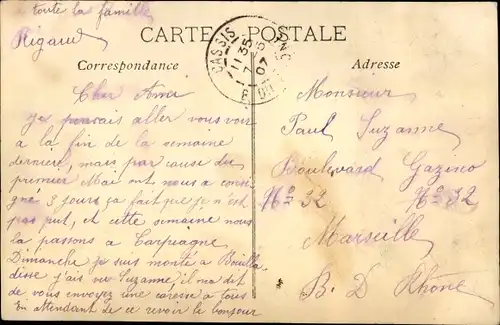 a toute la famille
Rigaud
CARTE POSTALE
CASSIS
11 35
7 - 5
07
B. DU RHÔNE
Correspondance
Adresse
Cher Ami
je pensais aller vous voir
a la fin de la semaine
derniere, mais par cause du
premier Mai ont nous a consi
gné 3 jours ça fait que je n'est
pas put, et cette semaine nous
la passons a Carpiagne
Dimanche je suis monté a
disse j'ais vu Suzanne, il ma dit
de vous envoyez une caresse a tous
En Attendant de ce revoir le bonjour
Monsieur
Paul Suzanne
Boulevard Gazino
No 32 No 32
Marseille
B. D Rhône